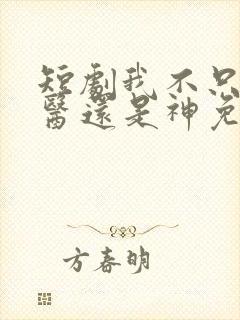 短劇我不只
醫還是神免
方春明